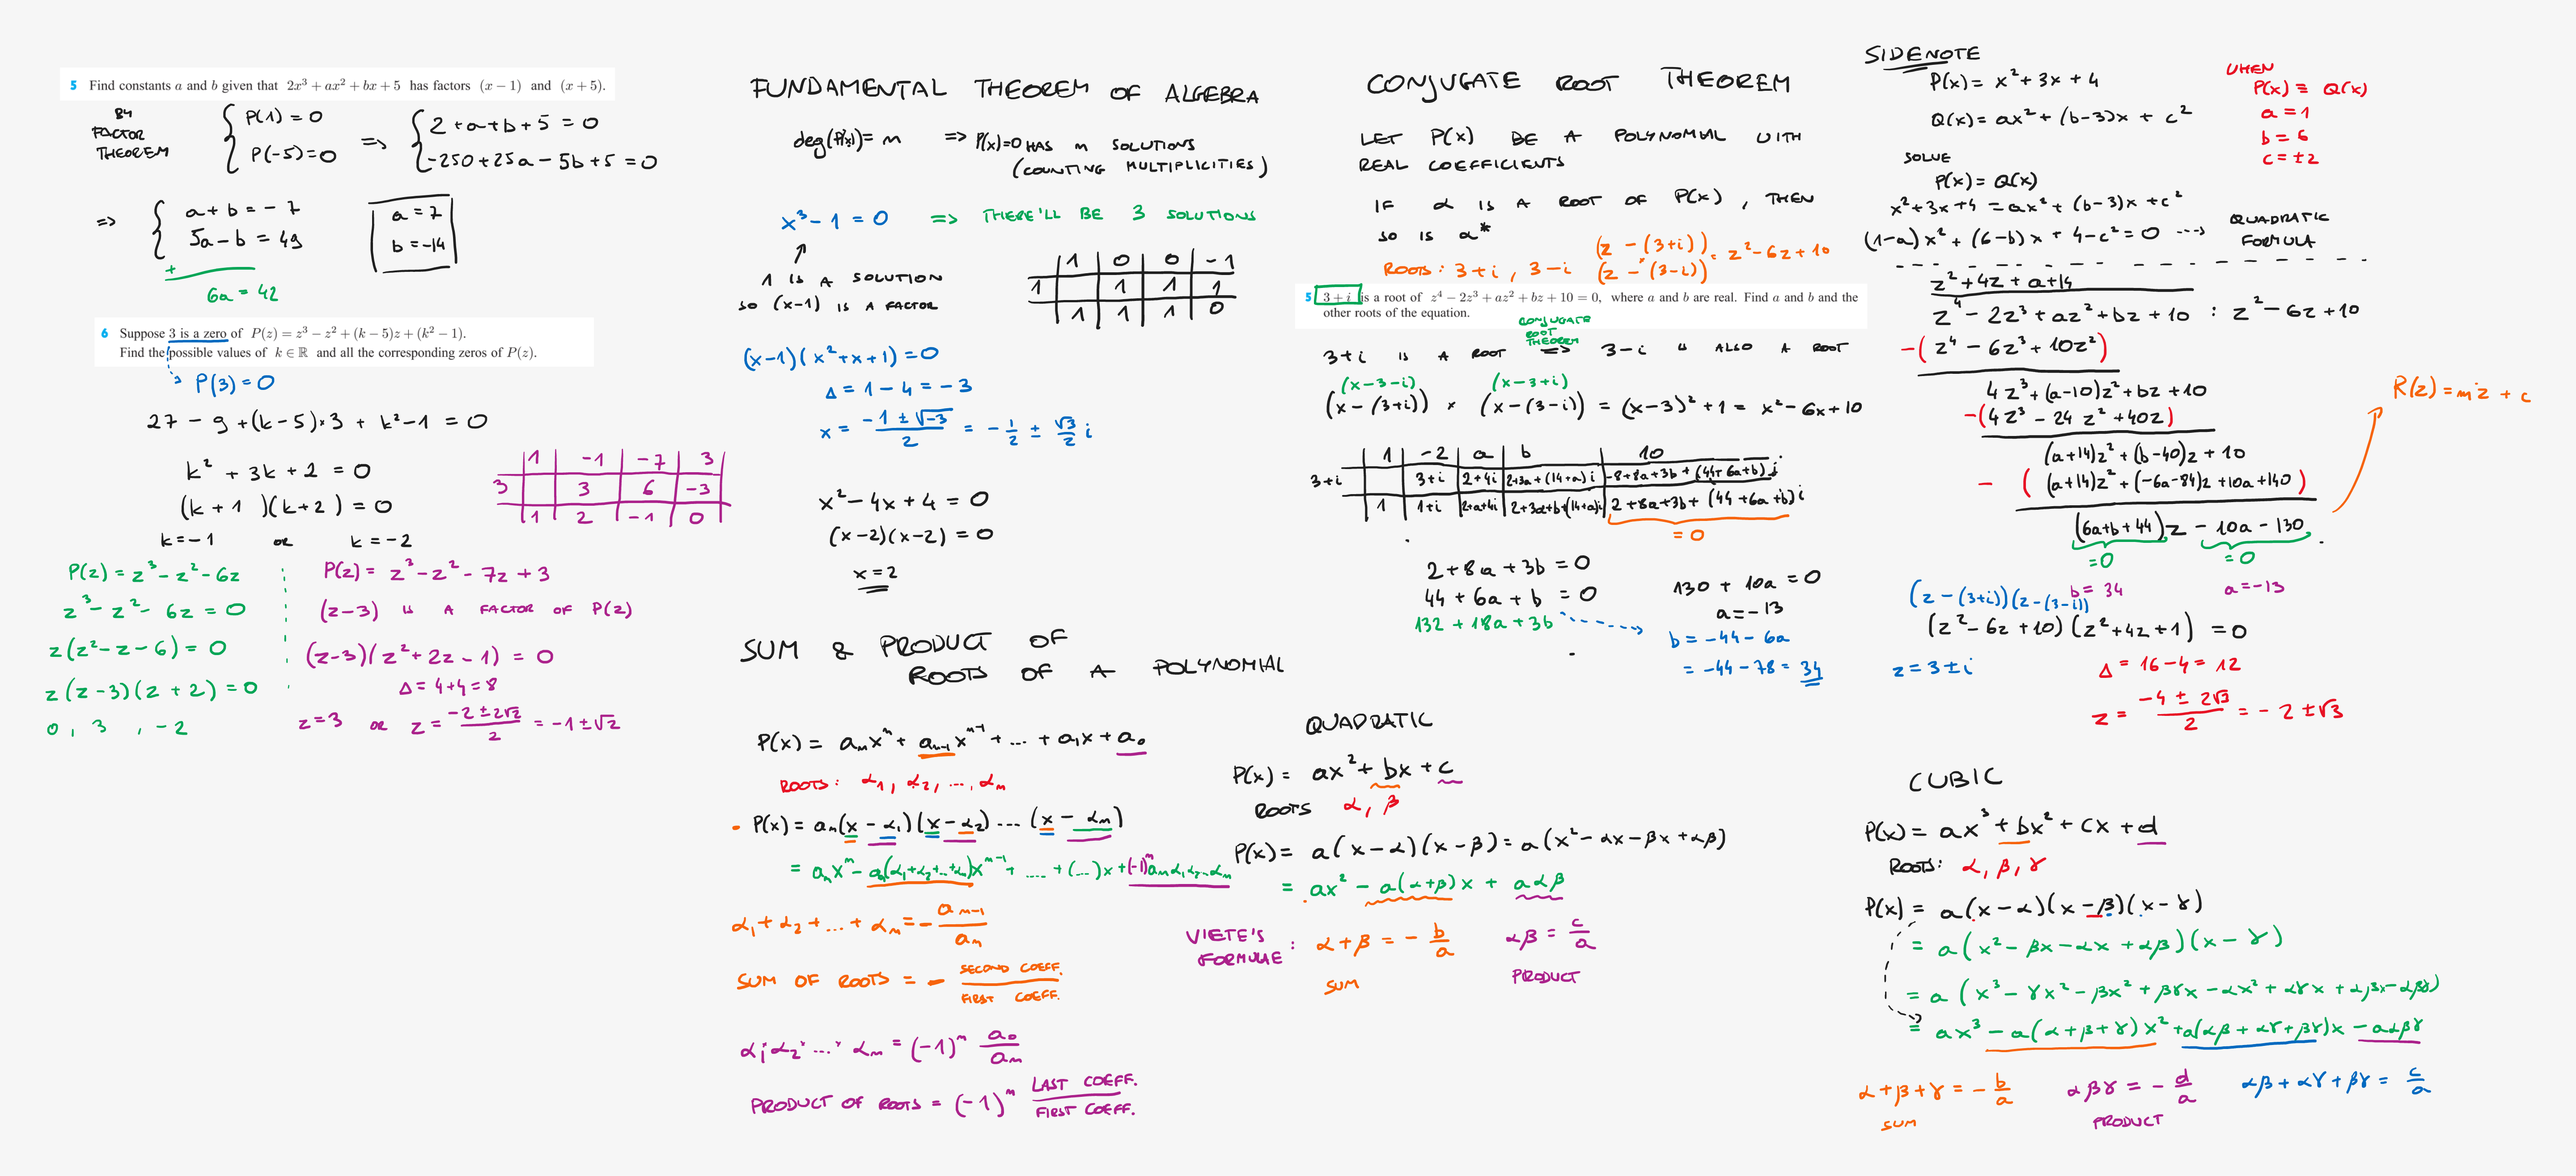 5 Find constants a and b given that 2x³ + ax² + bx + 5 has factors (x − 1) and (x + 5).
BY
FACTOR
THEOREM
{ P(1) = 0
P(-5) = 0
=> { 2 + a + b + 5 = 0
-250 + 25a - 5b + 5 = 0
=> { a + b = -7
5a - b = 49
+
6a = 42
a = 7
b = -14
6 Suppose 3 is a zero of P(z) = z³ − z² + (k − 5)z + (k² − 1).
Find the possible values of k ∈ ℝ and all the corresponding zeros of P(z).
P(3) = 0
27 - 9 + (k-5)·3 + k² - 1 = 0
k² + 3k + 2 = 0
(k + 1)(k + 2) = 0
k = -1 OR k = -2
1 -1 -7 3
3 3 6 -3
1 2 -1 0
P(z) = z³ - z² - 6z
z³ - z² - 6z = 0
z(z² - z - 6) = 0
z(z - 3)(z + 2) = 0
0, 3, -2
P(z) = z³ - z² - 7z + 3
(z-3) IS A FACTOR OF P(z)
(z-3)(z² + 2z - 1) = 0
Δ = 4 + 4 = 8
z = 3 OR z = (-2 ± 2√2)/2 = -1 ± √2
FUNDAMENTAL THEOREM OF ALGEBRA
deg(P(x)) = n => P(x)=0 HAS n SOLUTIONS
(COUNTING MULTIPLICITIES)
x³ - 1 = 0 => THERE'LL BE 3 SOLUTIONS
↑
1 IS A SOLUTION
SO (x-1) IS A FACTOR
1 0 0 -1
1 1 1 1
1 1 1 0
(x-1)(x² + x + 1) = 0
Δ = 1 - 4 = -3
x = (-1 ± √-3)/2 = -1/2 ± √3/2 i
x² - 4x + 4 = 0
(x-2)(x-2) = 0
x = 2
SUM & PRODUCT OF
ROOTS OF A POLYNOMIAL
P(x) = aₙxⁿ + aₙ₋₁xⁿ⁻¹ + ... + a₁x + a₀
ROOTS: α₁, α₂, ..., αₙ
P(x) = aₙ(x - α₁)(x - α₂) ... (x - αₙ)
= aₙxⁿ - aₙ(α₁+α₂+...+αₙ)xⁿ⁻¹ + .... + (...)x + (-1)ⁿaₙα₁α₂...αₙ
α₁ + α₂ + ... + αₙ = - aₙ₋₁/aₙ
SUM OF ROOTS = - SECOND COEFF. / FIRST COEFF.
α₁·α₂·...·αₙ = (-1)ⁿ a₀/aₙ
PRODUCT OF ROOTS = (-1)ⁿ LAST COEFF. / FIRST COEFF.
QUADRATIC
P(x) = ax² + bx + c
ROOTS α, β
P(x) = a(x - α)(x - β) = a(x² - αx - βx + αβ)
= ax² - a(α+β)x + aαβ
VIETE'S
FORMULAE : α + β = - b/a αβ = c/a
SUM PRODUCT
CONJUGATE ROOT THEOREM
LET P(x) BE A POLYNOMIAL WITH
REAL COEFFICIENTS
IF α IS A ROOT OF P(x), THEN
SO IS α*
ROOTS: 3+i, 3-i
(z - (3+i))·
(z - (3-i)) = z² - 6z + 10
5 3 + i is a root of z⁴ − 2z³ + az² + bz + 10 = 0, where a and b are real. Find a and b and the
other roots of the equation.
CONJUGATE
ROOT
THEOREM
3+i IS A ROOT => 3-i IS ALSO A ROOT
(x-3-i) (x-3+i)
(x-(3+i)) × (x-(3-i)) = (x-3)² + 1 = x² - 6x + 10
1 -2 a b 10
3+i 3+i 2+4i 2+3a+(14+a)i -8+8a+3b+(44+6a+b)i
1 1+i 2+a+4i 2+3a+b+(14+a)i 2+8a+3b+(44+6a+b)i
= 0
2 + 8a + 3b = 0
44 + 6a + b = 0
132 + 18a + 3b
130 + 10a = 0
a = -13
b = -44 - 6a
= -44 - 78 = 34
SIDENOTE
P(x) = x² + 3x + 4
Q(x) = ax² + (b-3)x + c²
WHEN
P(x) ≡ Q(x)
a = 1
b = 6
c = ±2
SOLVE
P(x) = Q(x)
x² + 3x + 4 = ax² + (b-3)x + c²
(1-a)x² + (6-b)x + 4 - c² = 0 ---> QUADRATIC
FORMULA
z² + 4z + a+14
z⁴ - 2z³ + az² + bz + 10 : z² - 6z + 10
-(z⁴ - 6z³ + 10z²)
4z³ + (a-10)z² + bz + 10
-(4z³ - 24z² + 40z)
(a+14)z² + (b-40)z + 10
- ((a+14)z² + (-6a-84)z + 10a+140)
(6a+b+44)z - 10a - 130
=0 =0
R(z) = mz + c
b = 34 a = -13
(z-(3+i))(z-(3-i))
(z² - 6z + 10)(z² + 4z + 1) = 0
z = 3 ± i
Δ = 16 - 4 = 12
z = (-4 ± 2√3)/2 = -2 ± √3
CUBIC
P(x) = ax³ + bx² + cx + d
ROOTS: α, β, γ
P(x) = a(x - α)(x - β)(x - γ)
= a(x² - βx - αx + αβ)(x - γ)
= a(x³ - γx² - βx² + βγx - αx² + αγx + αβx - αβγ)
= ax³ - a(α+β+γ)x² + a(αβ + αγ + βγ)x - aαβγ
α + β + γ = - b/a αβγ = - d/a αβ + αγ + βγ = c/a
SUM PRODUCT